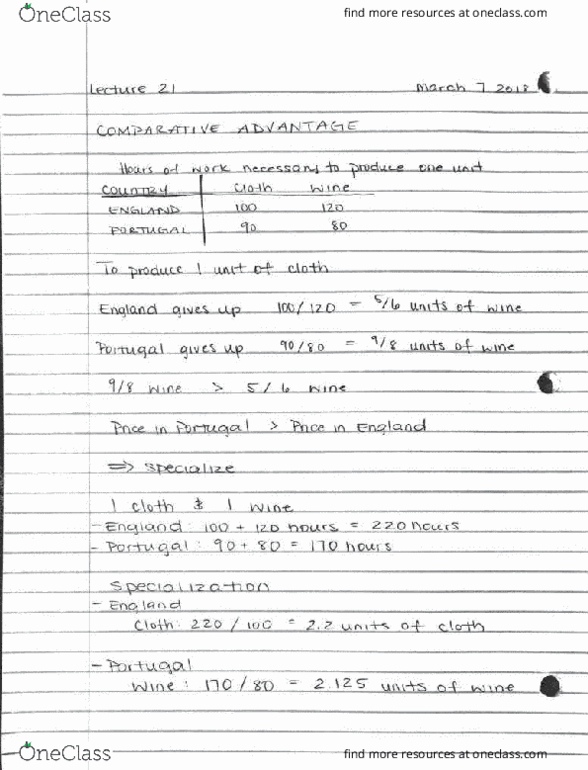 OneClass find more resources at oneclass.com
Lecture 21 March 7 2018
COMPARATIVE ADVANTAGE
Hours of work necessary to produce one unit
COUNTRY Cloth Wine
ENGLAND 100 120
PORTUGAL 90 80
To produce 1 unit of cloth
England gives up 100/120 = 5/6 units of wine
Portugal gives up 90/80 = 9/8 units of wine
9/8 wine > 5/6 wine
Price in Portugal > Price in England
⇒ specialize
1 cloth & 1 wine
- England: 100 + 120 hours = 220 hours
- Portugal: 90 + 80 = 170 hours
Specialization
- England
Cloth: 220 / 100 = 2.2 units of cloth
- Portugal
Wine: 170 / 80 = 2.125 units of wine
OneClass find more resources at oneclass.com